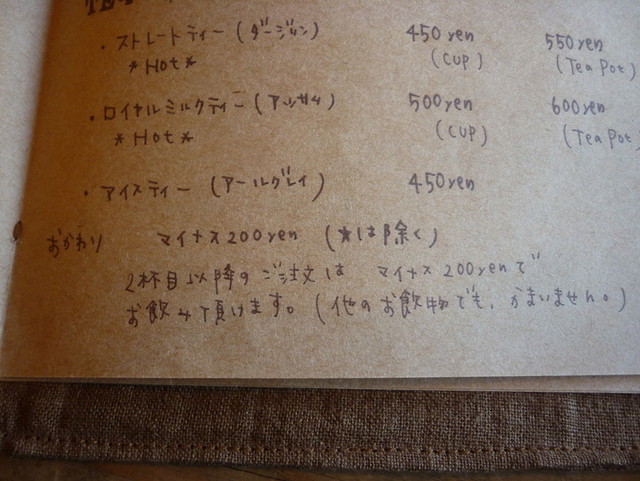 TEA
・ストレートティー(ダージリン) 450yen 550yen
*Hot* (Cup) (Tea Pot)
・ロイヤルミルクティー(アッサム) 500yen 600yen
*Hot* (Cup) (Tea Pot
・アイスティー (アールグレイ) 450yen
おかわり マイナス200yen (*は除く)
2杯目以降のご注文は マイナス200yenで
お飲み頂けます。(他のお飲物でも、かまいません。)